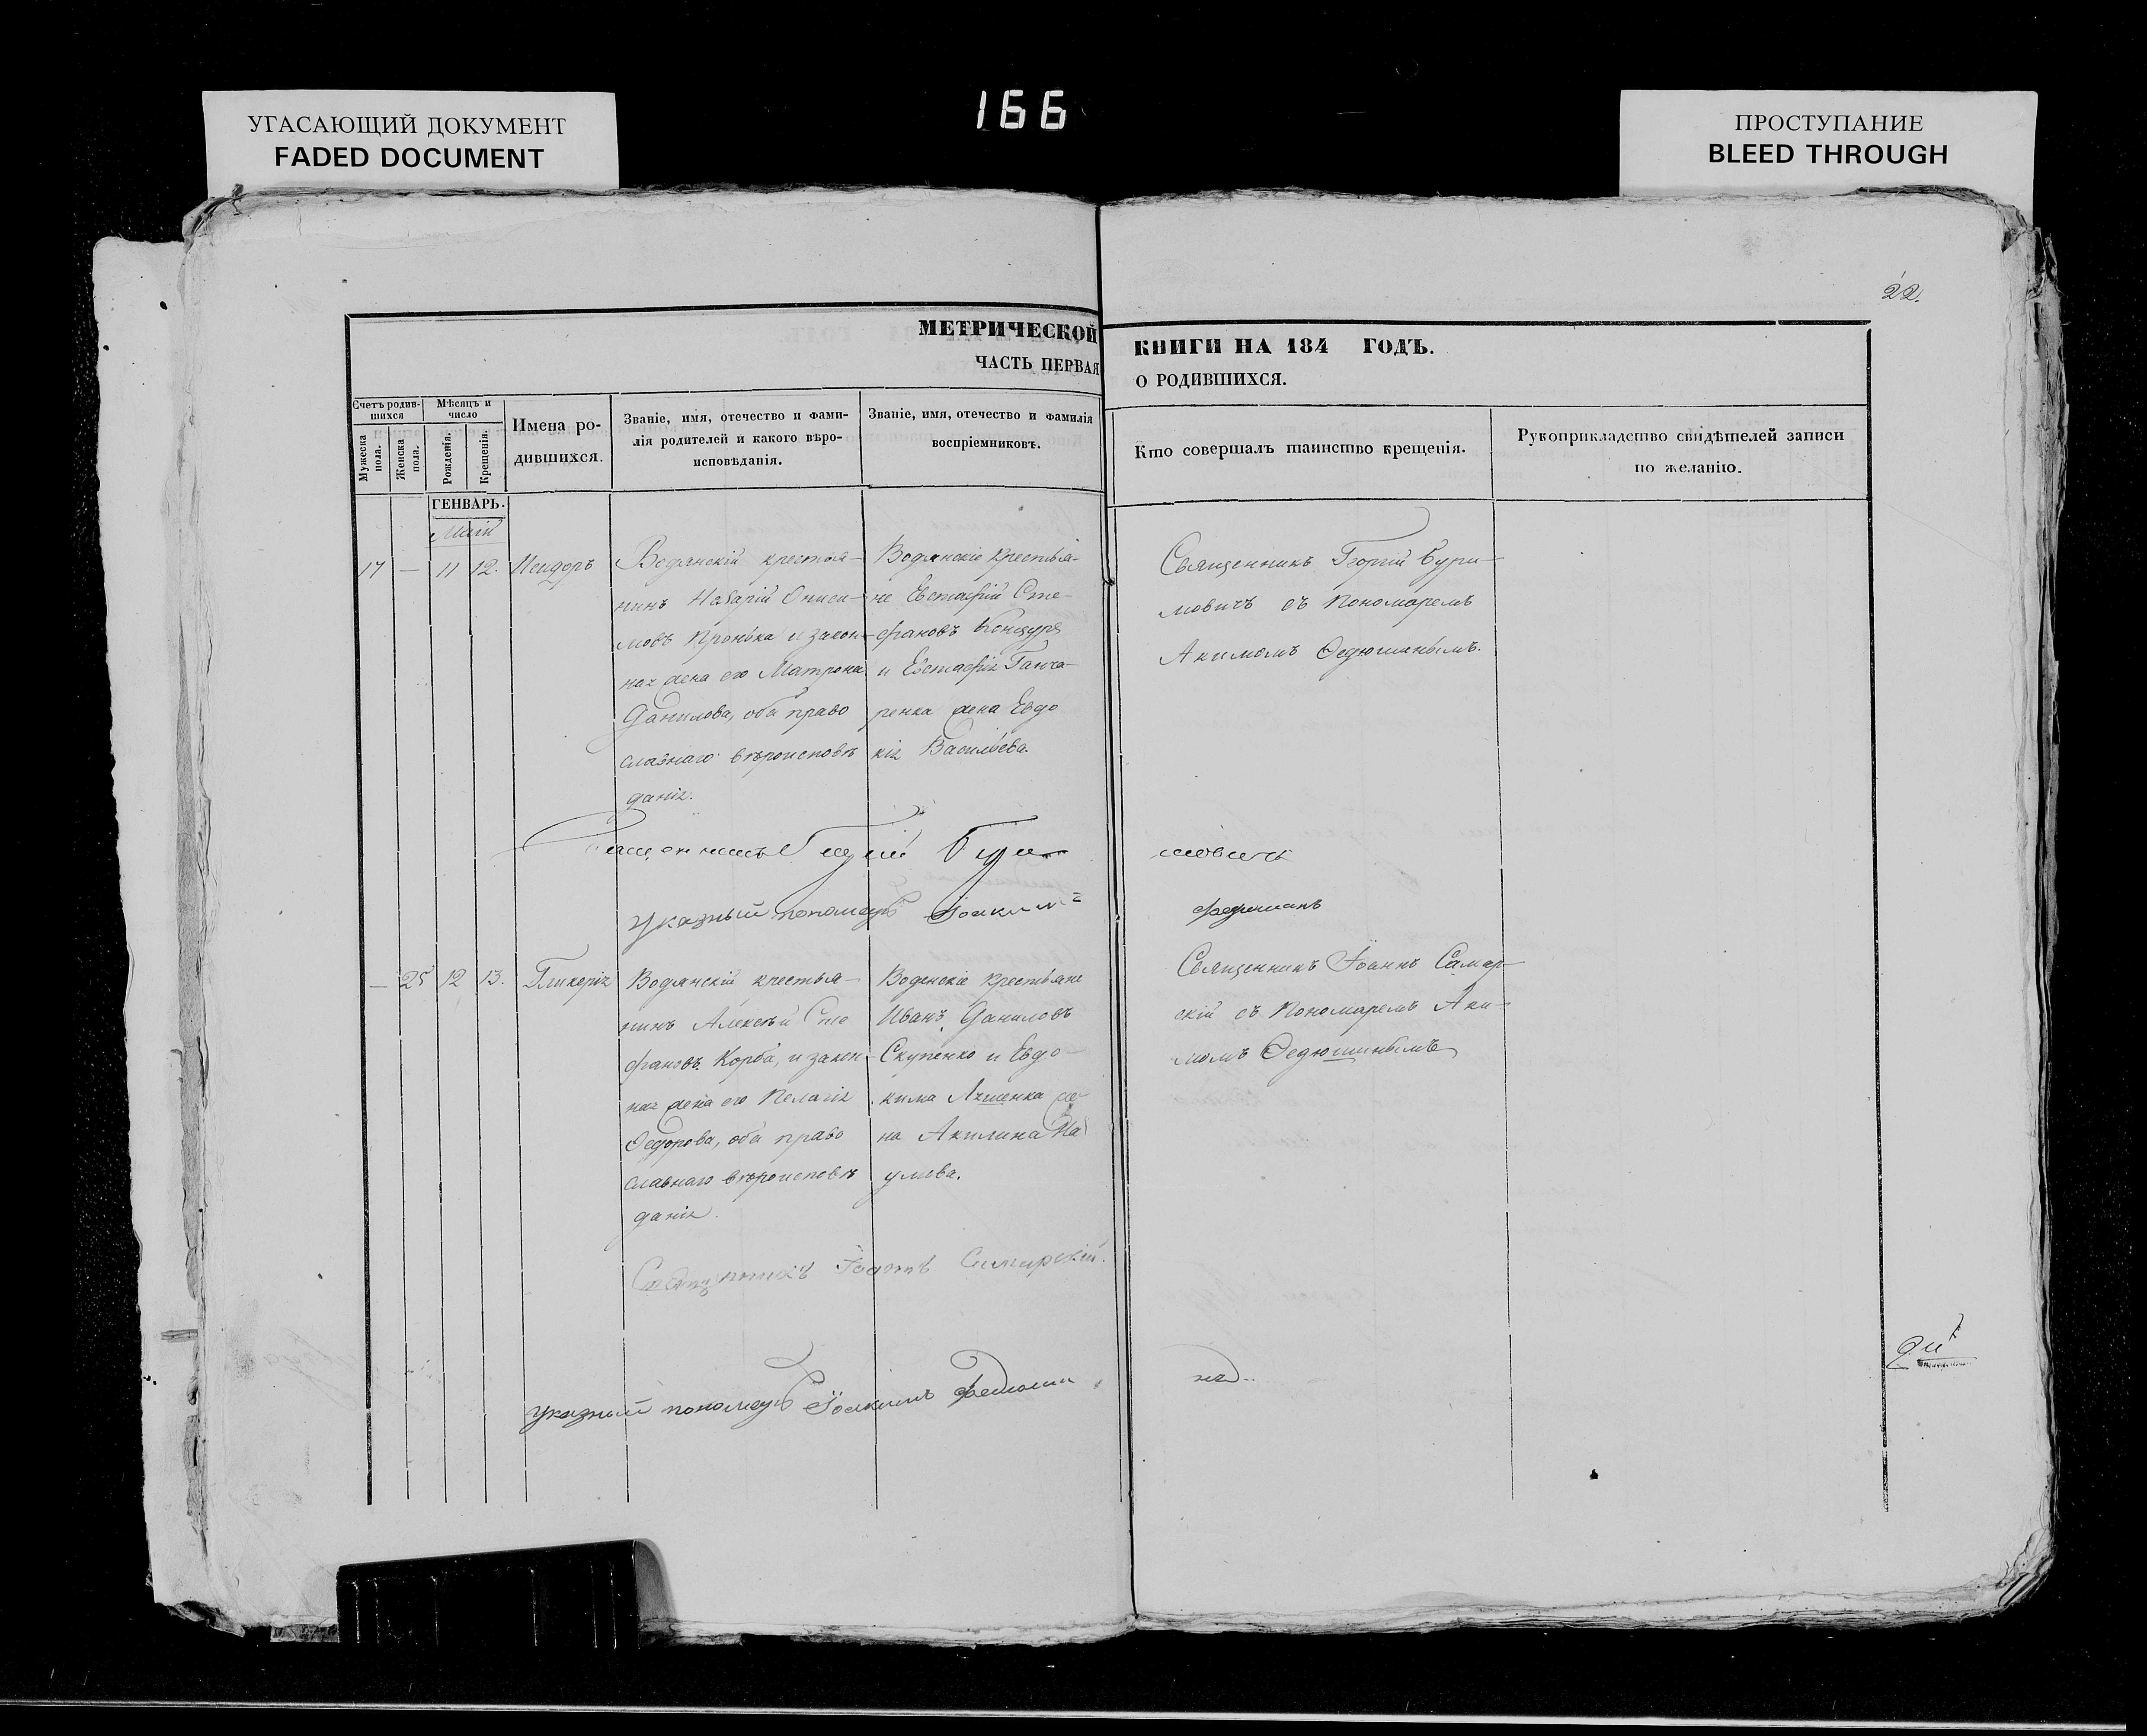 166
УГАСАЮЩИЙ ДОКУМЕНТ
FADED DOCUMENT
ПРОСТУПАНИЕ
BLEED THROUGH
22.
МЕТРИЧЕСКОЙ
ЧАСТЬ ПЕРВАЯ
КНИГИ НА 184 ГОДЪ.
О РОДИВШИХСЯ.
Счетъ родив-
шихся
Мужеска
пола.
Женска
пола.
Мѣсяцъ и
число
Рожденія.
Крещенія.
Имена ро-
дившихся.
Званіе, имя, отечество и фами-
лія родителей и какого вѣро-
исповѣданія.
Званіе, имя, отечество и фамилія
воспріемниковъ.
Кто совершалъ таинство крещенія.
Рукоприкладство свидѣтелей записи
по желанію.
ГЕНВАРЬ.
Маій
17 — 11 12. Исидоръ
Водянскій крестья-
нинъ Назарій Ониси-
мовъ Пронька и закон-
ная жена его Матрона
Данилова, оба право
славнаго вѣроисповѣ
данія.
Водянскіе крестья-
не Евстафій Сте-
фановъ
и Евстафія Ганча-
ренка жена Евдо
кія Васильева.
Священникъ Георгій Бури-
мовичъ съ пономаремъ
Акимомъ Ѳедюшинымъ.
Священникъ Георгій Бури
мовичъ
Указный пономарь Іоакимъ
— 25 12 13. Гликерія
Водянскій крестья-
нинъ Алексѣй Сте
фановъ Корба, и закон-
ная жена его Пелагія
Ѳедорова, оба право
славнаго вѣроисповѣ
данія.
Воденскіе крестьяне
Иванъ Даниловъ
Скупенко и Евдо-
кима Ляшенка же-
на Акилина На
умова.
Священникъ Іоаннъ Самар-
скій съ пономаремъ Аки-
момъ Ѳедюшинымъ
Священникъ Іоаннъ Самарскій.
Указный пономарь Іоакимъ Федюши
нъ..